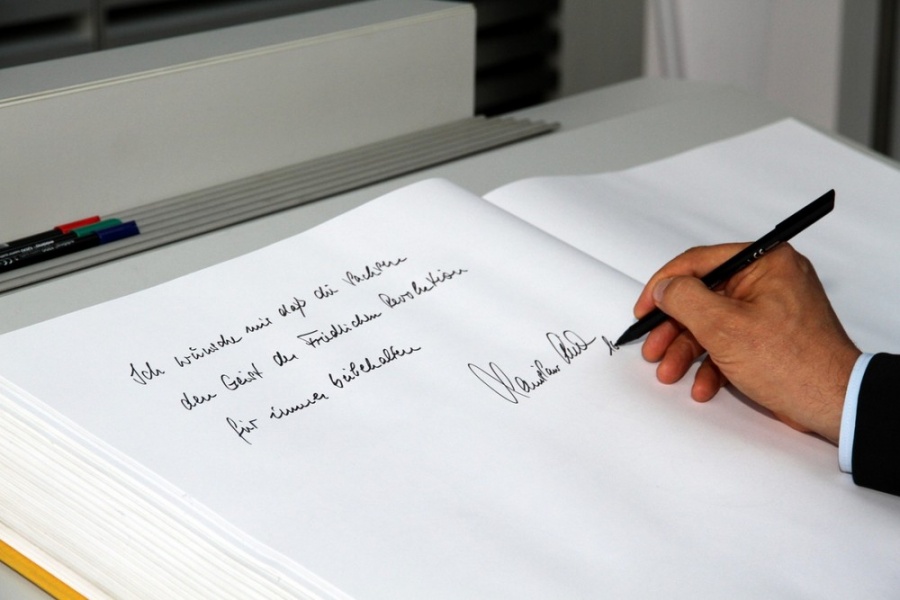 Ich wünsche mir daß die Sachsen
den Geist der Friedlichen Revolution
für immer beibehalten